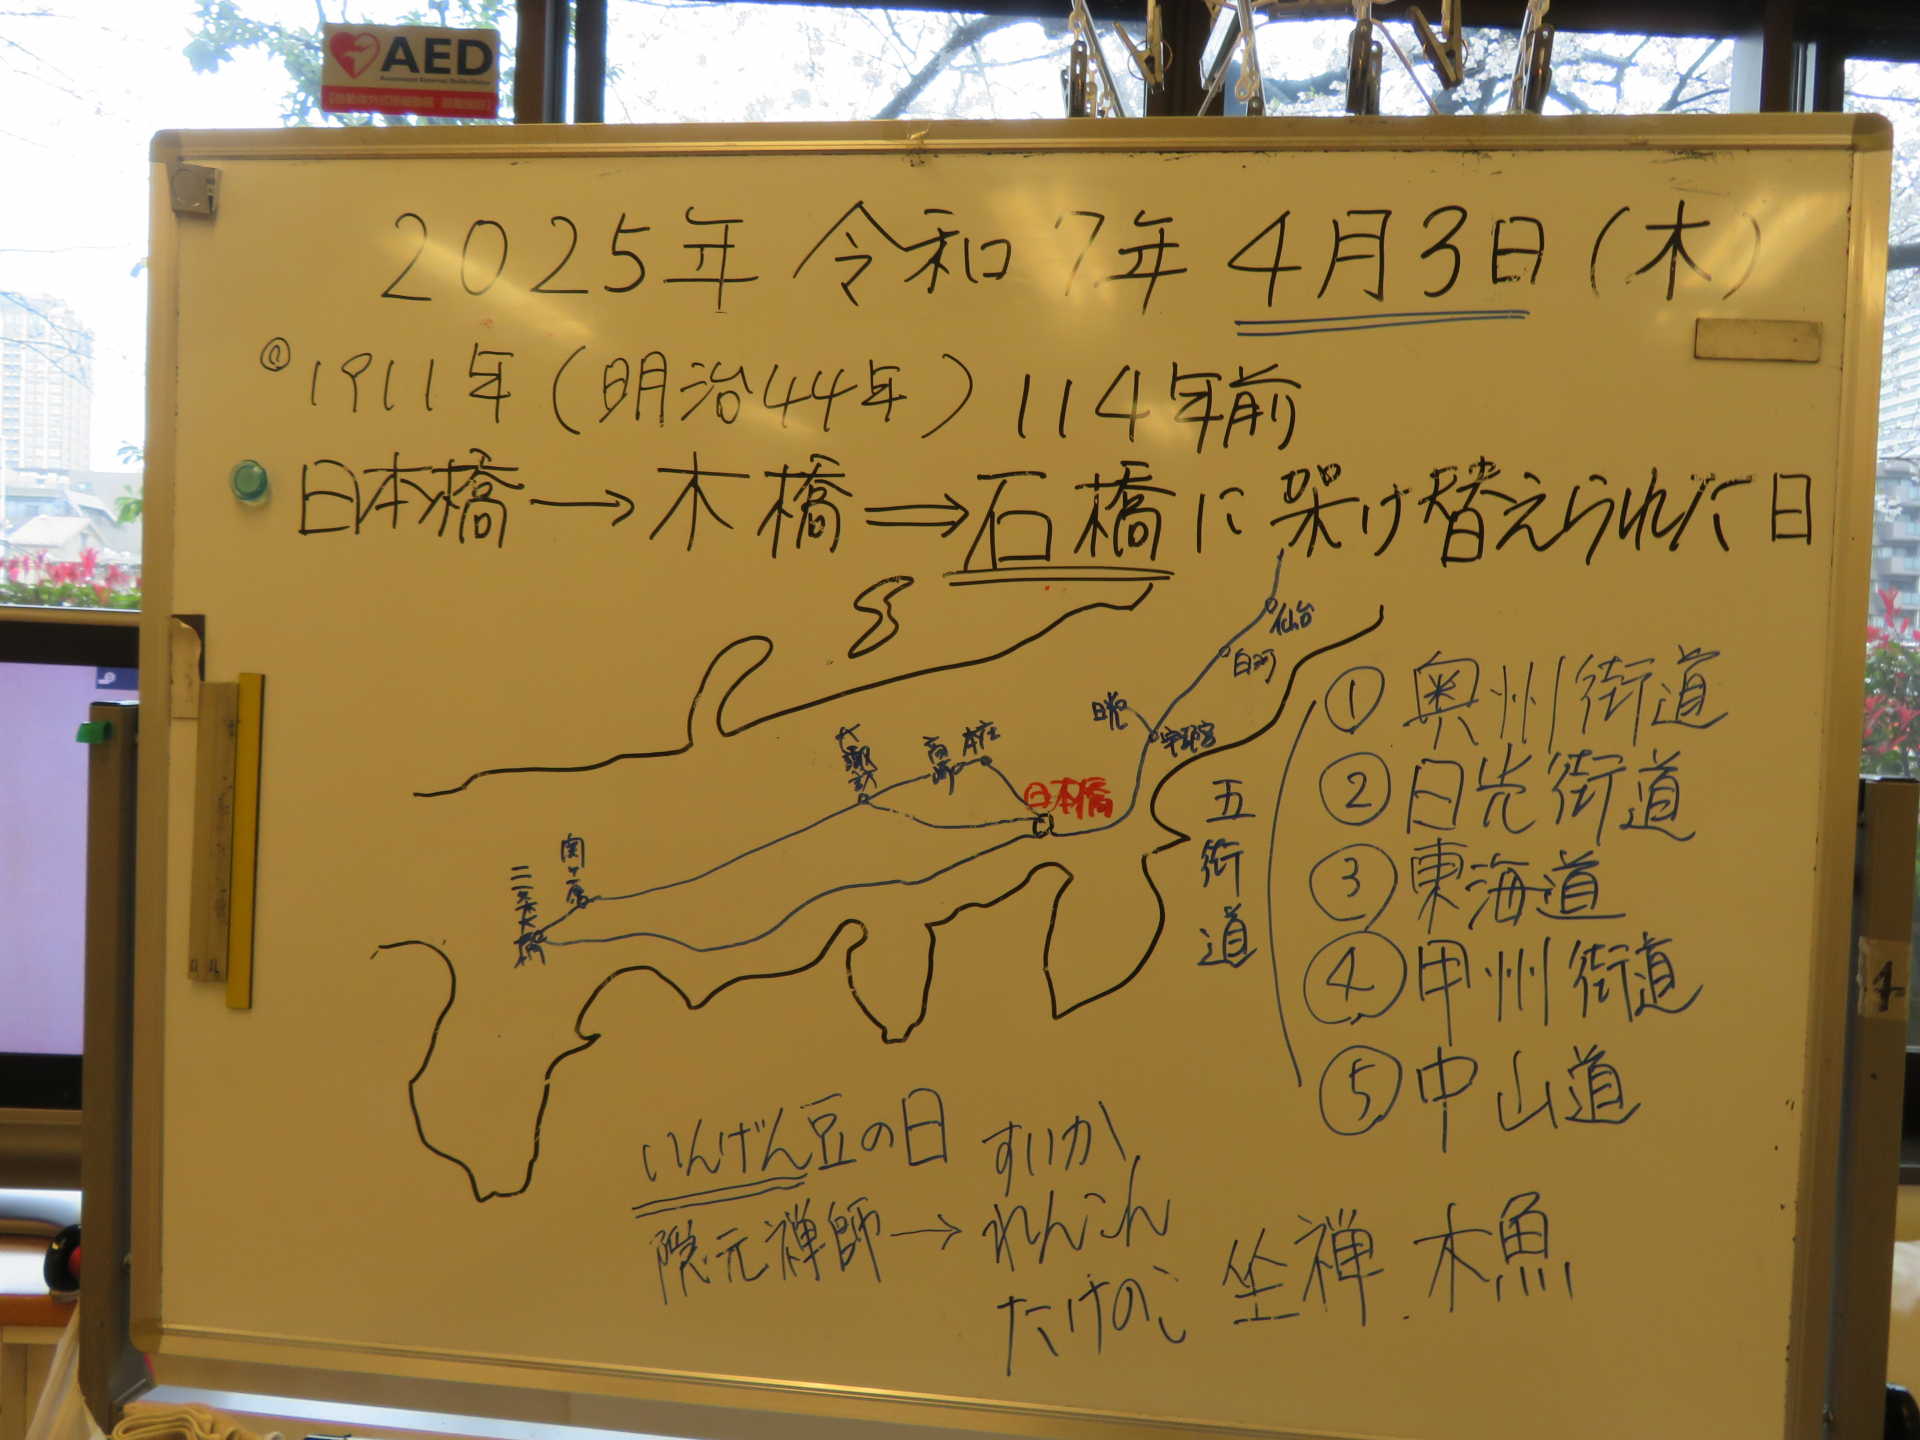 AED
Automated External Defibrillator
【自動体外式除細動器 設置施設】
2025年 令和7年 4月3日(木)
1911年(明治44年) 114年前
日本橋→木橋⇒石橋に架け替えられた日
仙台
白河
日光
宇都宮
下諏訪
高崎
本庄
日本橋
関ヶ原
三条大橋
五街道
①奥州街道
②日光街道
③東海道
④甲州街道
⑤中山道
いんげん豆の日
隠元禅師→
すいか
れんこん
たけのこ
坐禅.木魚